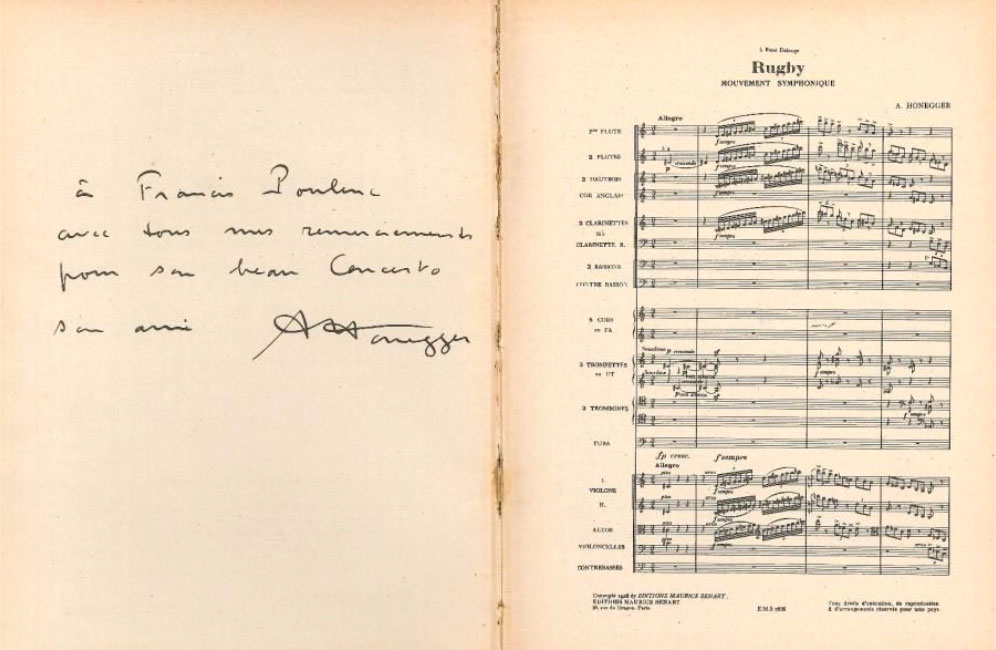 à Francis Poulenc
avec tous mes remerciements
pour son beau Concerto
son ami AHonegger
à René Delange
Rugby
MOUVEMENT SYMPHONIQUE
A. HONEGGER
Allegro
FLUTE
2 FLUTES
2 HAUTBOIS
COR ANGLAIS
2 CLARINETTES
SI♭
CLARINETTE B.
2 BASSONS
CONTRE BASSON
4 CORS
en FA
3 TROMPETTES
en UT
3 TROMBONES
TUBA
fp cresc. f sempre
Allegro
I.
VIOLONS
II.
ALTOS
VIOLONCELLES
CONTREBASSES
Copyright 1928 by EDITIONS MAURICE SENART.
EDITIONS MAURICE SENART
20, rue du Dragon, Paris
E.M.S.
Tous droits d'exécution, de reproduction
& d'arrangements réservés pour tous pays